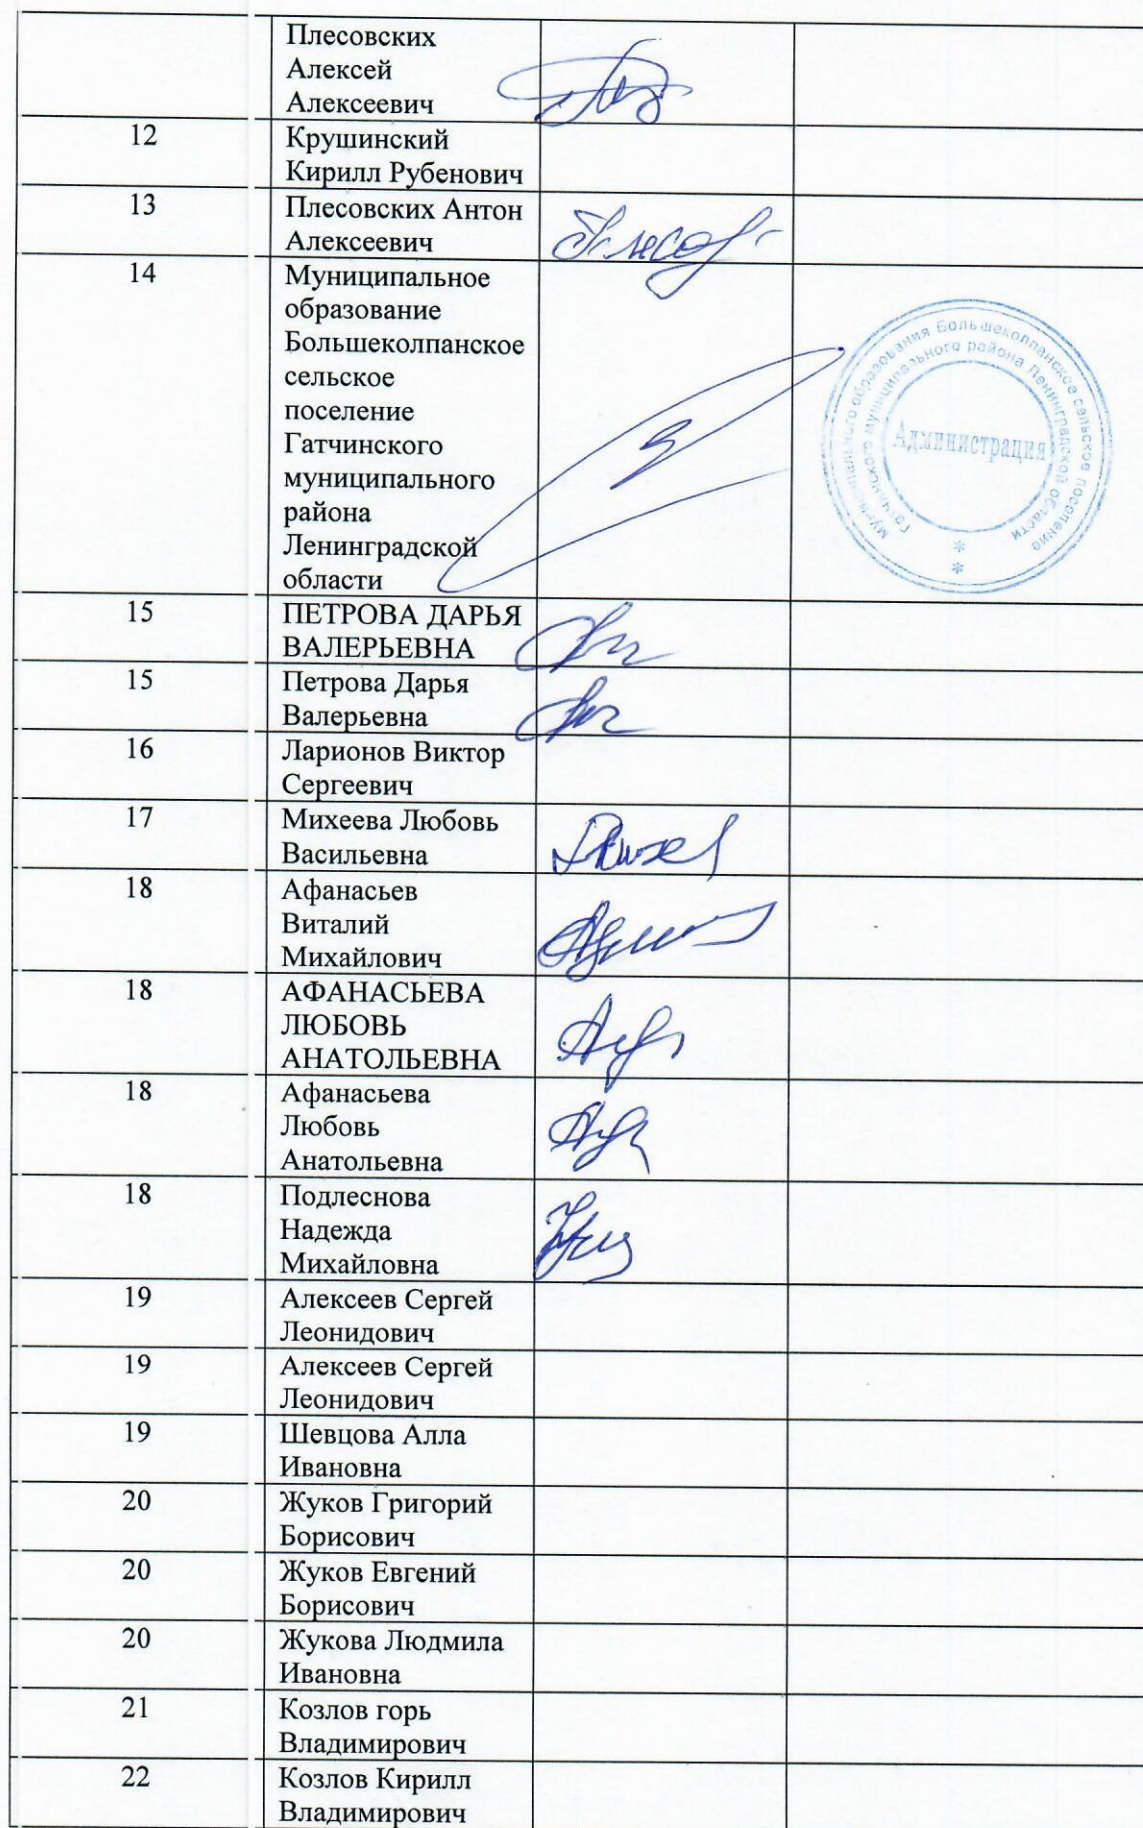 Плесовских
Алексей
Алексеевич
12 Крушинский
Кирилл Рубенович
13 Плесовских Антон
Алексеевич
14 Муниципальное
образование
Большеколпанское
сельское
поселение
Гатчинского
муниципального
района
Ленинградской
области
Муниципального образования Большеколпанское сельское поселение
Гатчинского муниципального района Ленинградской области
Администрация
15 ПЕТРОВА ДАРЬЯ
ВАЛЕРЬЕВНА
15 Петрова Дарья
Валерьевна
16 Ларионов Виктор
Сергеевич
17 Михеева Любовь
Васильевна
18 Афанасьев
Виталий
Михайлович
18 АФАНАСЬЕВА
ЛЮБОВЬ
АНАТОЛЬЕВНА
18 Афанасьева
Любовь
Анатольевна
18 Подлеснова
Надежда
Михайловна
19 Алексеев Сергей
Леонидович
19 Алексеев Сергей
Леонидович
19 Шевцова Алла
Ивановна
20 Жуков Григорий
Борисович
20 Жуков Евгений
Борисович
20 Жукова Людмила
Ивановна
21 Козлов горь
Владимирович
22 Козлов Кирилл
Владимирович